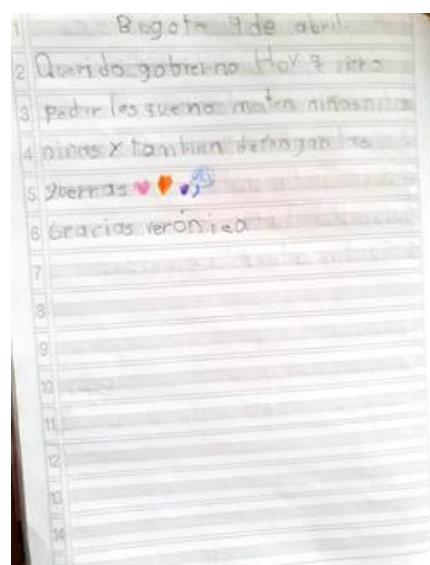 1 Bogota 9 de abril.
2 Querido gobierno Hoy quiero
3 pedirles que no maten niños ni
4 niñas y tambien detengan las
5 guerras
6 Gracias verónica
7
8
9
10
11
12
13
14